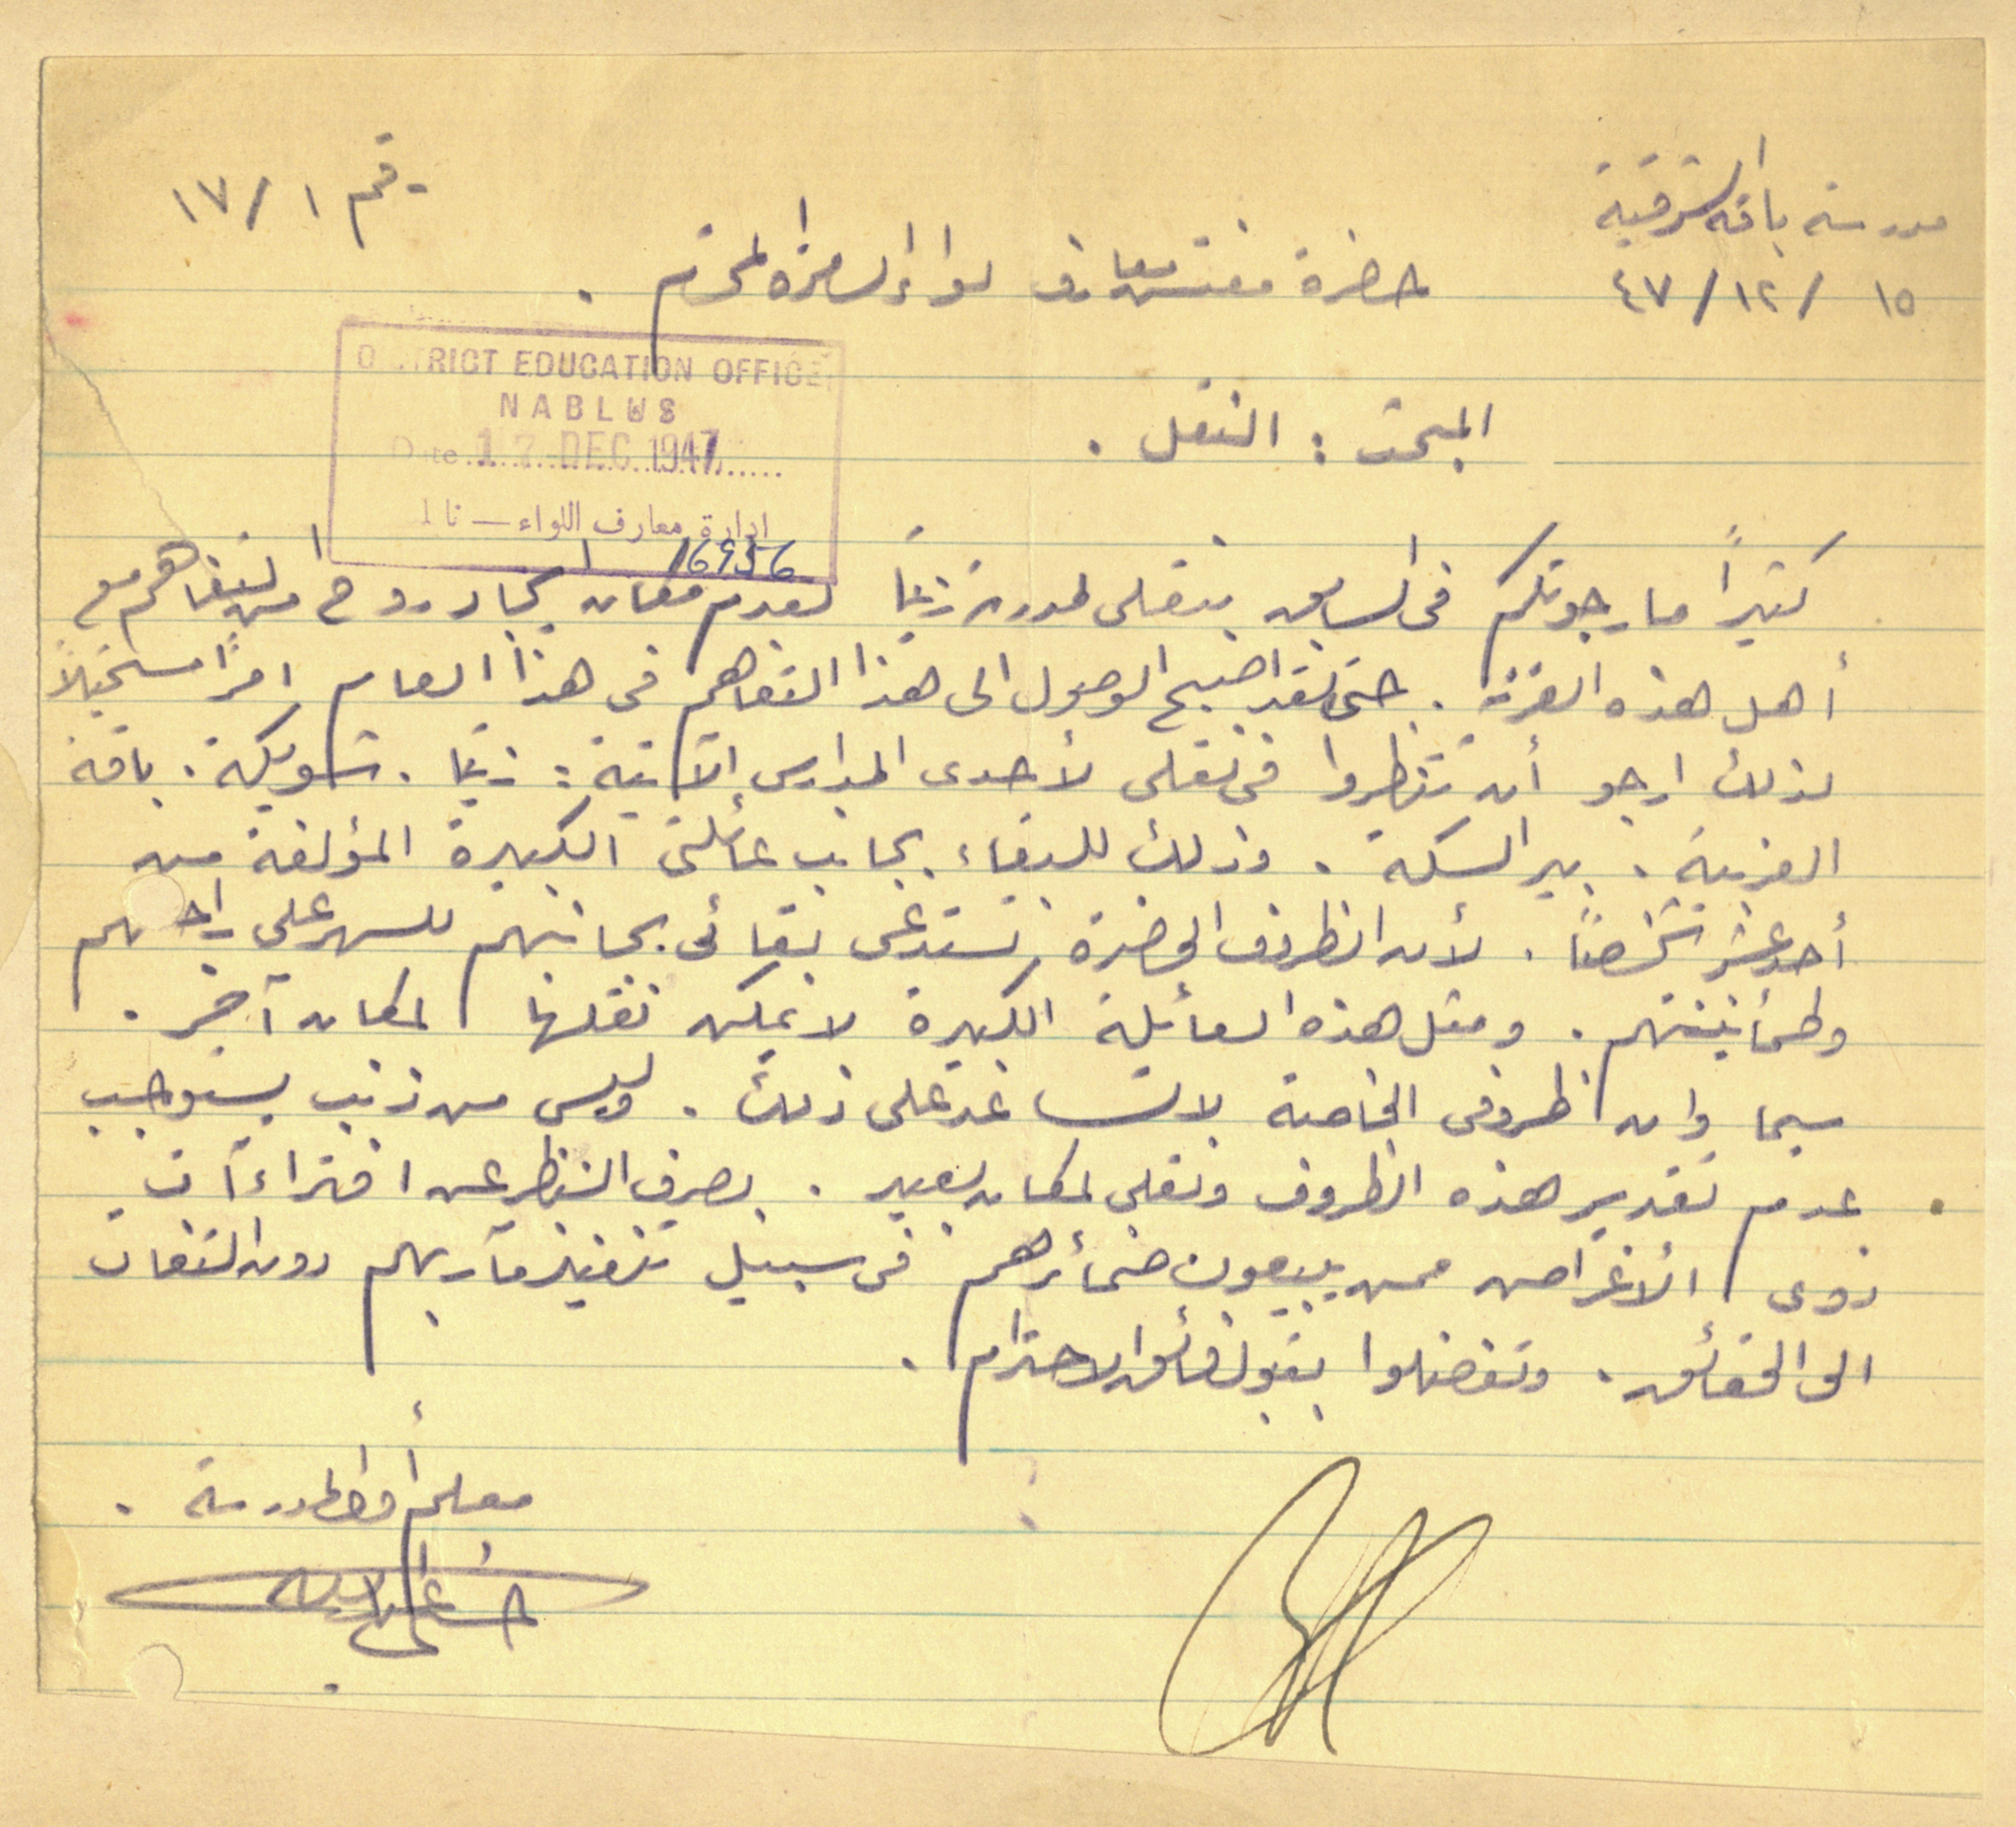 مدرسة باقة الشرقية
١٥ /١٢/ ٤٧
رقم ١ /١٧
حضرة مفتش معارف لواء السامرة المحترم .
DISTRICT EDUCATION OFFICE
NABLUS
Date 17 DEC 1947
ادارة معارف اللواء — نا
16956
المبحث : النقل .
كثيراً ما رجوتكم فى السابق بنقلى لمدرسة زيتا لعدم امكان ايجاد روح من التفاهم مع
أهل هذه القرية . حتى لقد اصبح الوصول الى هذا التفاهم فى هذا العام امراً مستحيلاً
لذلك ارجو أن تنظروا فى نقلى لأحدى المدارس الآتية : زيتا . شويكة . باقة
الغربية . بير السكة . وذلك للبقاء بجانب عائلتى الكبيرة المؤلفة من
أحد عشر شخصاً . لأن الظروف الحاضرة تستدعى بقائى بجانبهم للسهر على راحتهم
وطمأنينتهم . ومثل هذه العائلة الكبيرة لا يمكن نقلها لمكان آخر .
سيما وان ظروفى الخاصة لا تساعد على ذلك . وليس من ذنب يستوجب
عدم تقدير هذه الظروف ونقلى لمكان بعيد . بصرف النظر عن افتراءآت
ذوى الأغراض ممن يبيعون ضمائرهم فى سبيل تنفيذ مآربهم دون التفات
الى الحقائق . وتفضلوا بقبول فائق الاحترام .
معلم أول المدرسة .